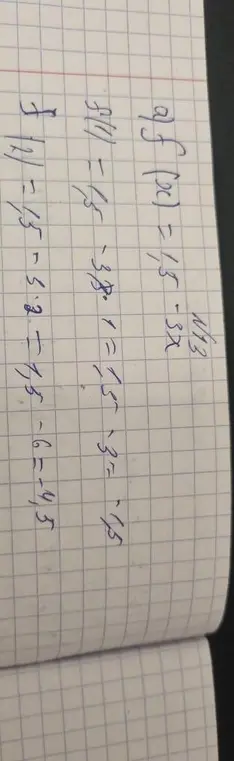 N13
а) f (x) = 1,5 - 3x
f(1) = 1,5 - 3 · 1 = 1,5 - 3 = -1,5
f (2) = 1,5 - 3·2 = 1,5 - 6 = -4,5